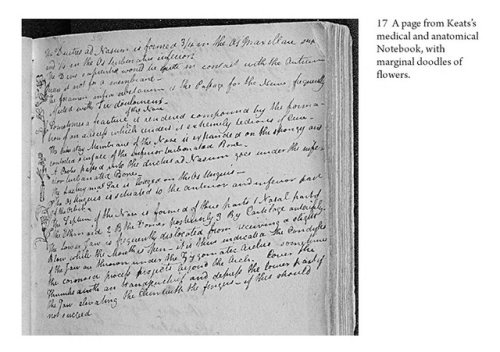 The Ductus ad Nasum is formed 3/4 in the Os Maxillare sup
and 1/4 in the Os turbinatum inferior
The Dura would be quite in contact with the Antrum
were it not for a membrane
The foramen infra is the Passage for the Nerve frequently
affected with Tic douloureux
of the Nose
Sometimes a fracture is rendered compound by the forma-
tion of an abscess which renders it extremely tedious of Cure
The pituitary Membrane of the Nose is expanded on the spongy and
convoluted surface of the inferior turbinated Bone
A Probe passed into the ductus ad Nasum goes under the infe-
rior turbinated Bone
The lachrymal Sac is lodged in the Os Unguis
The Os Unguis is situated to the anterior and inferior part
of the Orbit
The Septum of the Nose is formed of three parts 1 Nasal part of
the Ethmoid 2 By the Vomer posteriorly 3 By Cartilage anteriorly
The Lower Jaw is frequently dislocated from receiving a slight
Blow while the Mouth is open it is thus indicated the Condyles
of the Jaw are thrown under the Zygomatic Arches sometimes
the coronoid process projects beyond the Arch. Cover your
Thumbs with an handkerchief and depress the lower part of
the Jaw elevating the Chin with the fingers if this should
not succeed
17 A page from Keats's
medical and anatomical
Notebook, with
marginal doodles of
flowers.